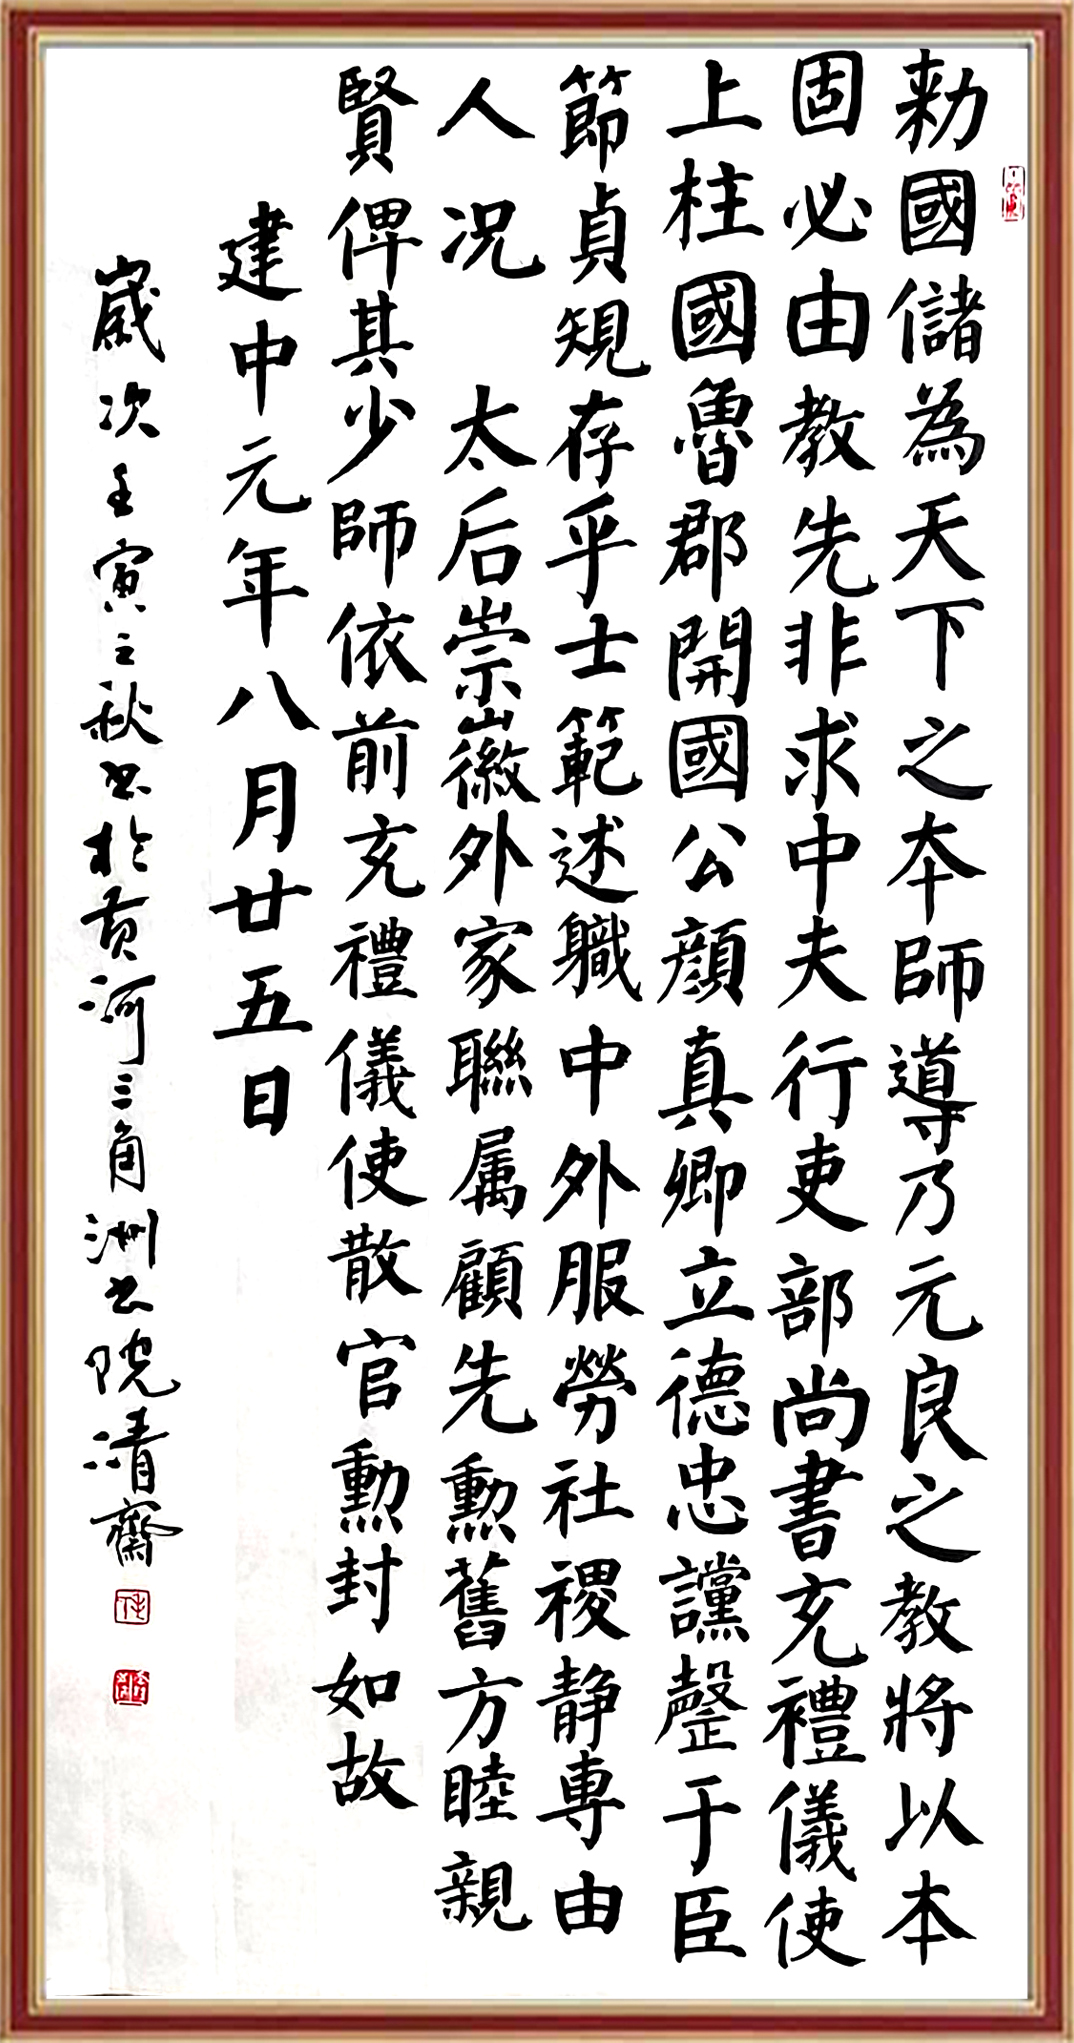 勑國儲為天下之夲師導乃元良之教將以本
固必由教先非求中夫行吏部尚書充禮儀使
上柱國魯郡開國公顔真卿立德忠讜罄于臣
節貞䂓存乎士範述軄中外服勞社稷静専由
人况 太后崇徽外家聯属顧先勲舊方睦親
賢俾其少師依前充禮儀使散官勲封如故
建中元年八月廿五日
嵗次壬寅之秋书於黄河三角洲书院清齋